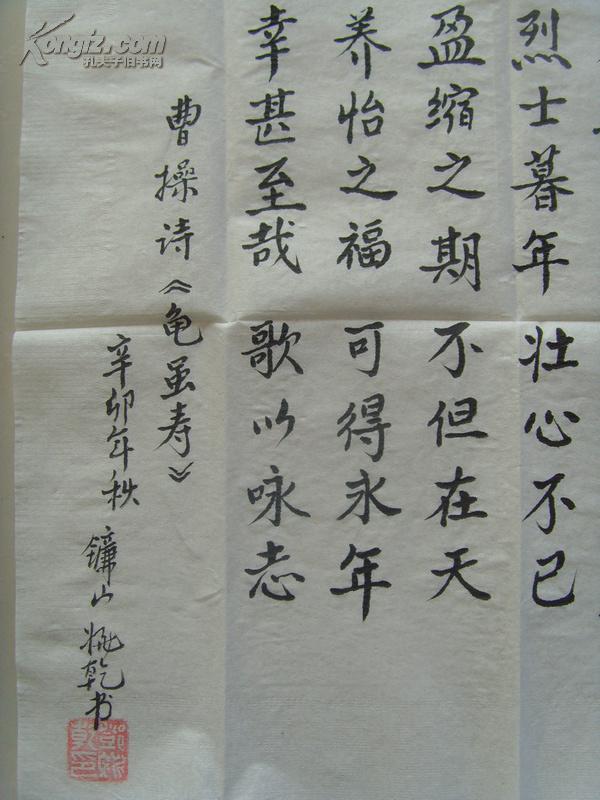 烈士暮年 壮心不已
盈缩之期 不但在天
养怡之福 可得永年
幸甚至哉 歌以咏志
曹操诗《龟虽寿》
辛卯年秋 镰山 乾书
Kongfz.com
孔夫子旧书网